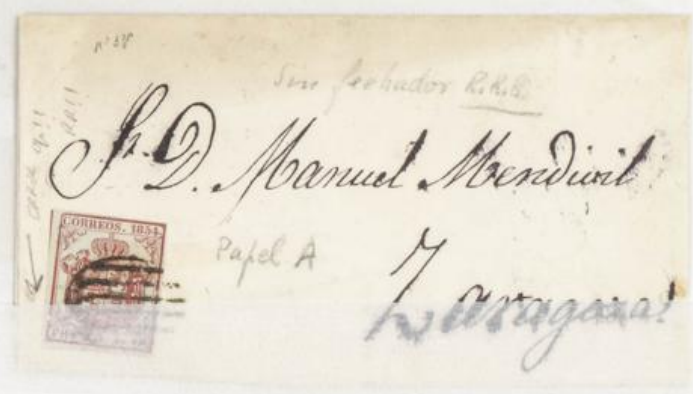 nº 38
Sin fechador R.R.R.
RR!!
Sr. D. Manuel Mendivil
CORREOS. 1854
Papel A
Zaragoza